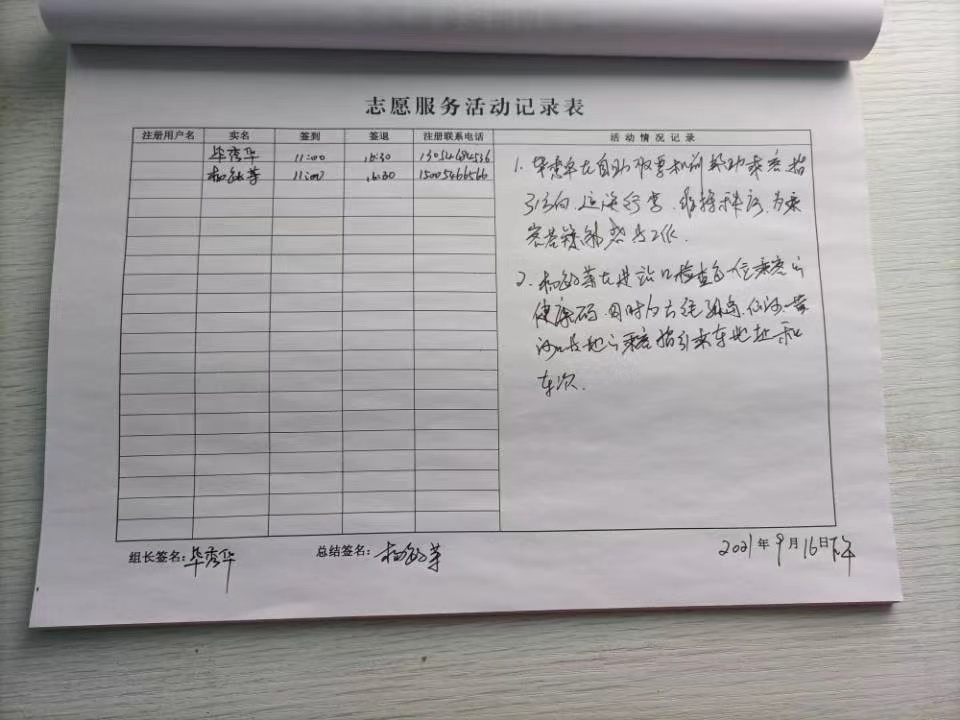 志愿服务活动记录表
注册用户名 实名 签到 签退 注册联系电话 活动情况记录
毕秀华 11:00 16:30 13054684536
杨 芳 11:00 16:30 15005466566
1. 毕秀华在自助取票机前帮助乘客指
引方向、运送行李、维持秩序、为乘
客答疑解惑等工作.
2. 在进站口检查每一位乘客的
健康码,同时为去
的乘客指引乘车地址和
车次.
组长签名: 毕秀华 总结签名: 杨 芳 2021年9月16日下午